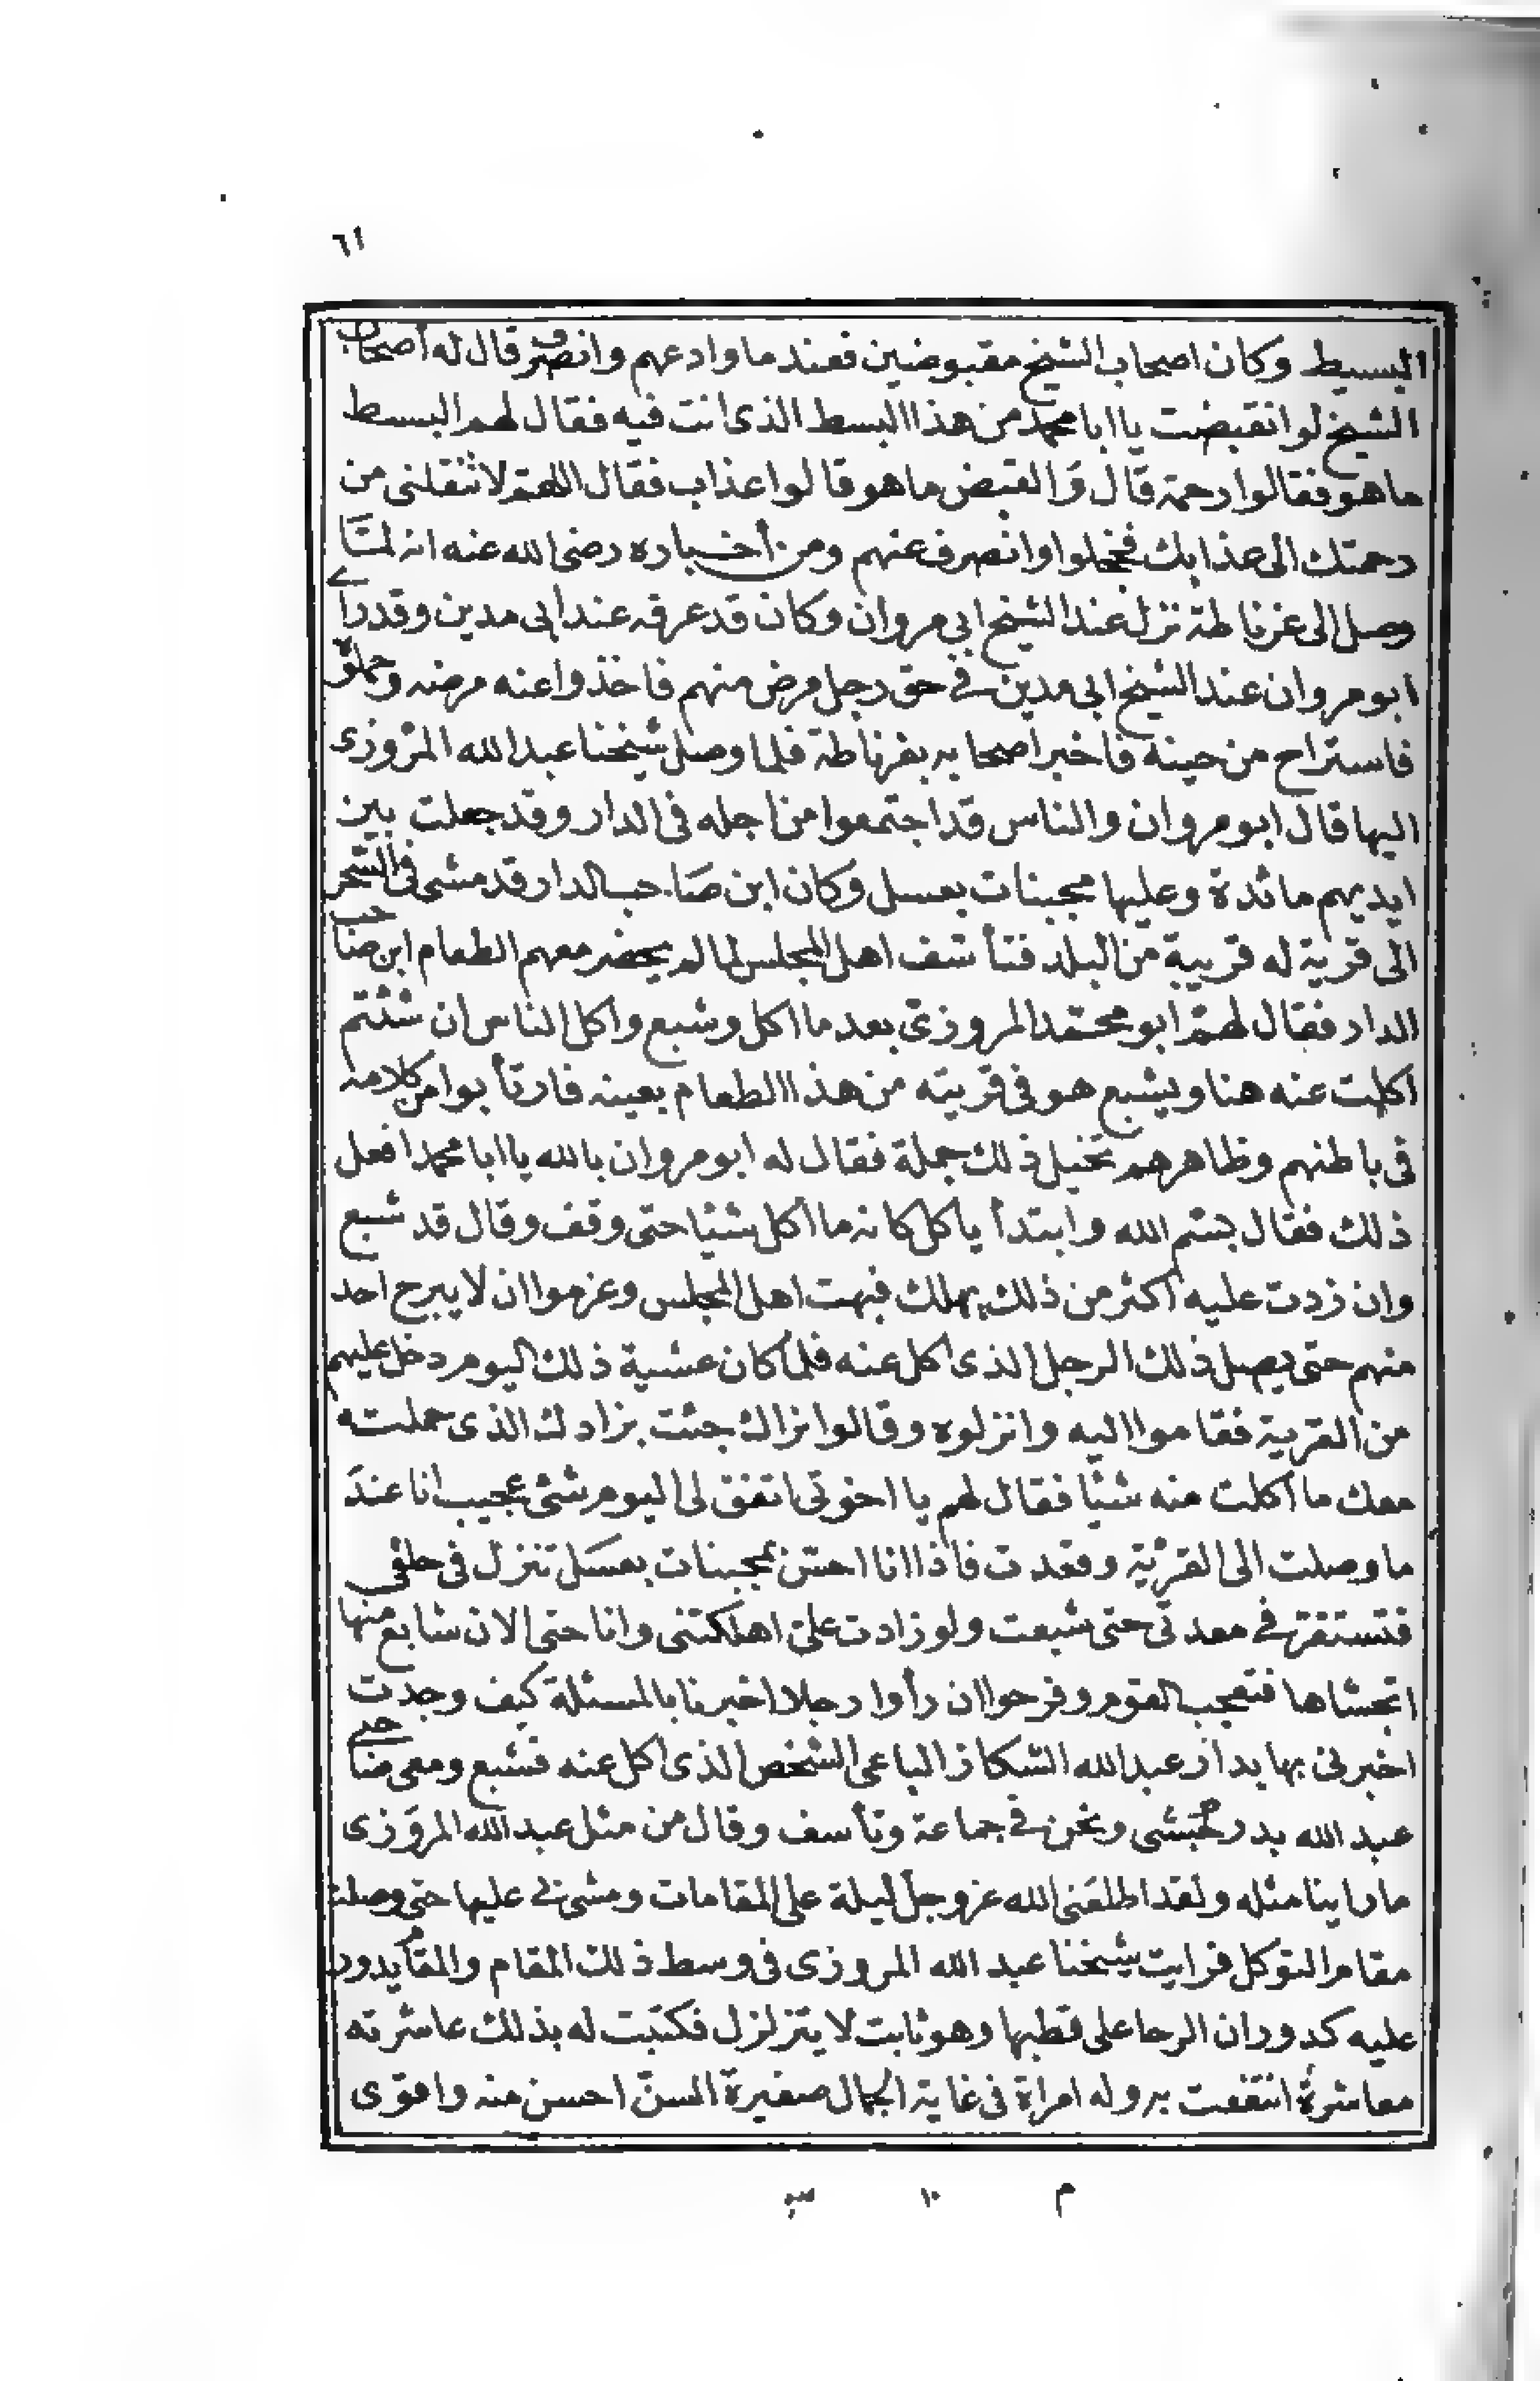 ٦١
البسيط وكان اصحاب الشيخ مقبوضين فعند ما وادعهم وانصرف قال له أصحاب
الشيخ لو انقبضت يا ابا محمد من هذا البسط الذى انت فيه فقال لهم البسط
ما هو فقالوا رحمة قال وَالقبض ما هو قالوا عذاب فقال اللهم لا تنقلنى من
رحمتك الى عذابك فخجلوا وانصرف عنهم ومن أخباره رضى الله عنه انه لمّا
وصل الى غرناطة نزل عند الشيخ ابى مروان وكان قد عرفه عند أبى مدين وقد رأى
ابو مروان عند الشيخ ابى مدين فى حق رجل مرض منهم فاخذوا عنه مرضه وحملوه
فاستراح من حينة فاخبر اصحابه بغرناطة فلما وصل شيخنا عبد الله المروزى
اليها قال ابو مروان والناس قد اجتمعوا من أجله فى الدار وقد جعلت بين
ايديهم مائدة وعليها مجبنات بعسل وكان ابن صَاحب الدار قد مشى فى السحر
الى قرية له قريبة من البلد فتأسف اهل المجلس لما لم يحضر معهم الطعام ابن صاحب
الدار فقال لهم ابو محمّد المروزىّ بعد ما اكل وشبع واكل الناس ان شئتم
اكلت عنه هنا ويشبع هو فى قريته من هذا الطعام بعينه فارتأبوا من كلامه
فى باطنهم وظاهرهم تخيل ذلك جملة فقال له ابو مروان بالله يا ابا محمد افعل
ذلك فقال بسم الله وابتدأ ياكل كانه ما اكل شيئا حتى وقف وقال قد شبع
وان زدت عليه اكثر من ذلك يهلك فبهت اهل المجلس وعزموا ان لا يبرح احد
منهم حتى يصل ذلك الرجل الذى اكل عنه فلما كان عشية ذلك اليوم دخل عليهم
من القرية فقاموا اليه وانزلوه وقالوا نراك جئت بزادك الذى حملته
معك ما اكلت منه شيئا فقال لهم يا اخوتى اتفق لى اليوم شئ عجيب انا عندَ
ما وصلت الى القرية وقعدت فاذا انا احسّ بمجبنات بعسَل تنزل فى حلقى
فتستقر فى معدتى حتى شبعت ولو زادت علىّ اهلكتنى وانا حتى الان شابع منها
اتجشاها فتعجب القوم وفرحوا ان رأوا رجلا اخبرنا بالمسئلة كيف وجدت
اخبرنى بها يدا ر عبد الله الشكاز الباغى الشخص الذى اكل عنه فشبع ومعى صاحبى
عبد الله بدر حبشى ونحن فى جماعة وتأسف وقال من مثل عبد الله المروَزى
ما راينا مثله ولقد اطلعَنى الله عز وجل ليلة على المقامات ومشى بى عليها حتى وصلت
مقام التوكل فرايت شيخنا عبد الله المروزى فى وسط ذلك المقام والمقام يدور
عليه كدوران الرحا على قطبها وهو ثابت لا يتزلزل فكتبت له بذلك عاشرته
معاشرةً انتفعت به وله امراة فى غاية الجمال صغيرة السنّ احسن منه واقوى
م ١٠